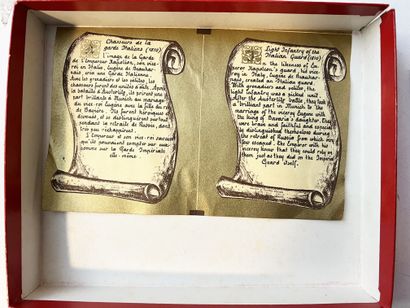 Chasseurs de la
garde Italiens (1810)
A l'image de la Garde
de l'Empereur Napoléon, son vice-
roi en Italie, Eugène de Beauhar-
nais créa une Garde Italienne.
Avec les grenadiers et les vélites, les
chasseurs furent des unités d'élite. Après
la bataille d'Austerlitz, ils prirent une
part brillante à Munich au mariage
du vice-roi Eugène avec la fille du roi
de Bavière. Ils furent héroïques et
dévoués, et se distinguèrent surtout
pendant la retraite de Russie, dont
très peu réchappèrent.
L'Empereur et son vice-roi savaient
qu'ils pouvaient compter sur eux
comme sur la Garde Impériale
elle-même
Light Infantry of the
Italian Guard (1810)
In the likeness of Em-
peror Napoleon's guard, his vice-
roy in Italy, Eugène de Beauhar-
nais, created an Italian guard.
With grenadiers and velites, the
light Infantry was a picked unit.
After the Austerlitz battle, they took
a brilliant part in Munich to the
marriage of the viceroy Eugene with
the king of Bavaria's daughter. They
were brave and faithful and especial-
ly distinguished themselves during
the retreat of Russia from which very
few escaped. The Emperor with his
viceroy knew that they could rely on
them just as they did on the Imperial
Guard itself.